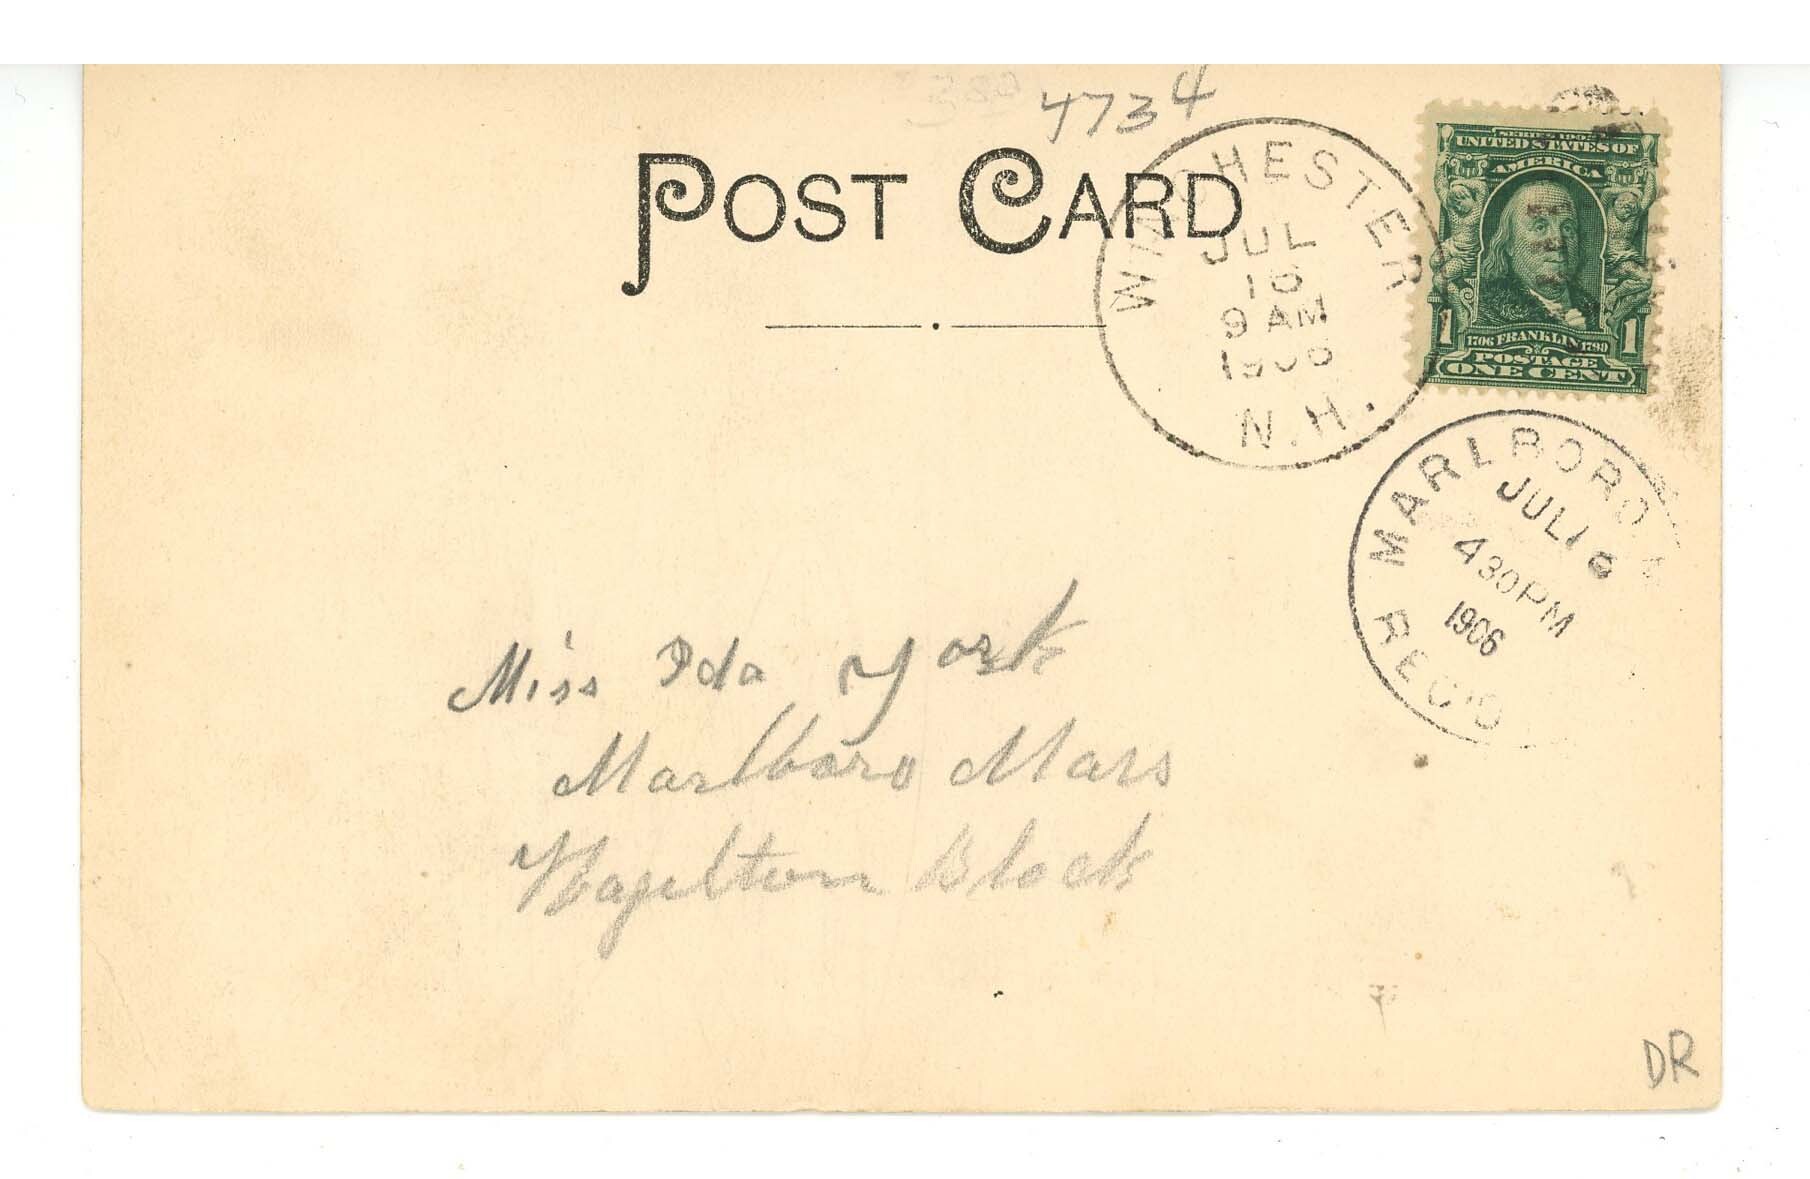 4734
POST CARD
WINCHESTER
JUL
16
9 AM
1906
N.H.
SERIES 1902
UNITED STATES OF
AMERICA
1706 FRANKLIN 1790
POSTAGE
1 ONE CENT 1
MARLBORO
JUL 16
430PM
1906
REC'D
Miss Ida York
Marlboro Mass
Hazelton Block
DR